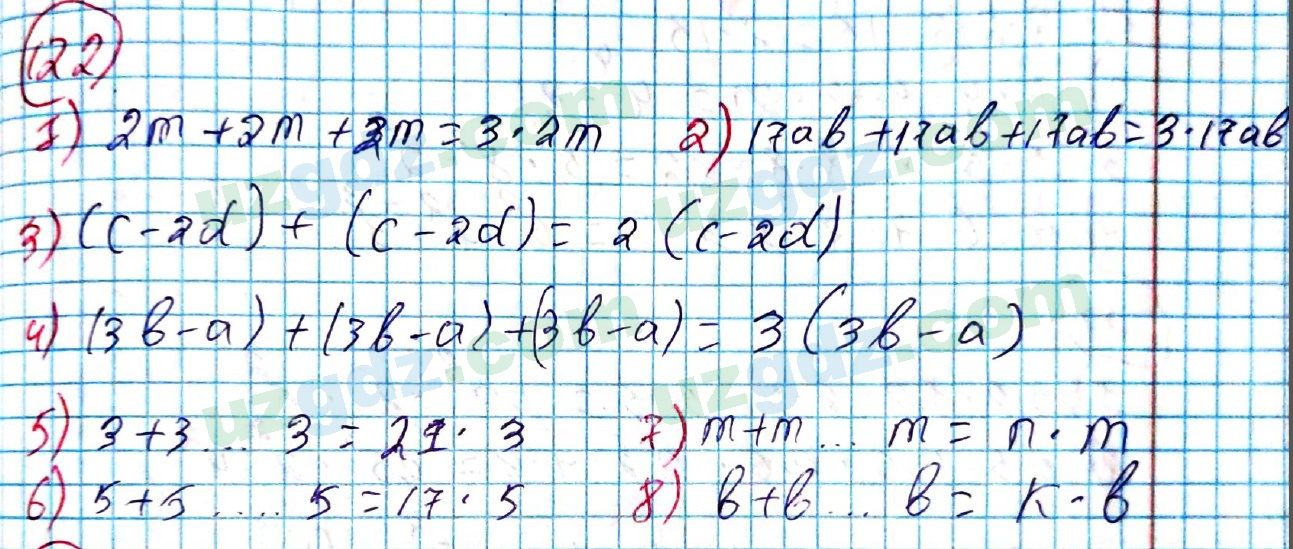 122
1) 2m + 2m + 2m = 3 · 2m 2) 17ab + 17ab + 17ab = 3 · 17ab
3) (c - 2d) + (c - 2d) = 2 (c - 2d)
4) (3b - a) + (3b - a) + (3b - a) = 3 (3b - a)
5) 3 + 3 .... 3 = 21 · 3 7) m + m ... m = n · m
6) 5 + 5 ..... 5 = 17 · 5 8) b + b ... b = k · b
uzgdz.com
uzgdz.com
uzgdz.com
uzgdz.com